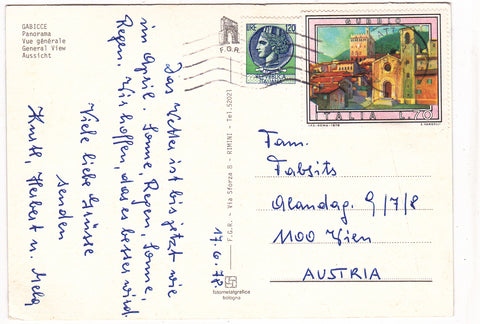 GABICCE
Panorama
Vue générale
General View
Aussicht
F.G.R.
120
GUBBIO
ITALIA L.70
Das Wetter ist bis jetzt wie
im April. Sonne, Regen, Sonne,
Regen. Wir hoffen das es besser wird.
Viele liebe Grüsse
senden
Herbert u.
17.6.78.
F.G.R. - Via Sforza 8 - RIMINI - Tel. 52021
fotometalgrafica
bologna
Fam.
Tabsits
9/7/8
1100 Wien
AUSTRIA